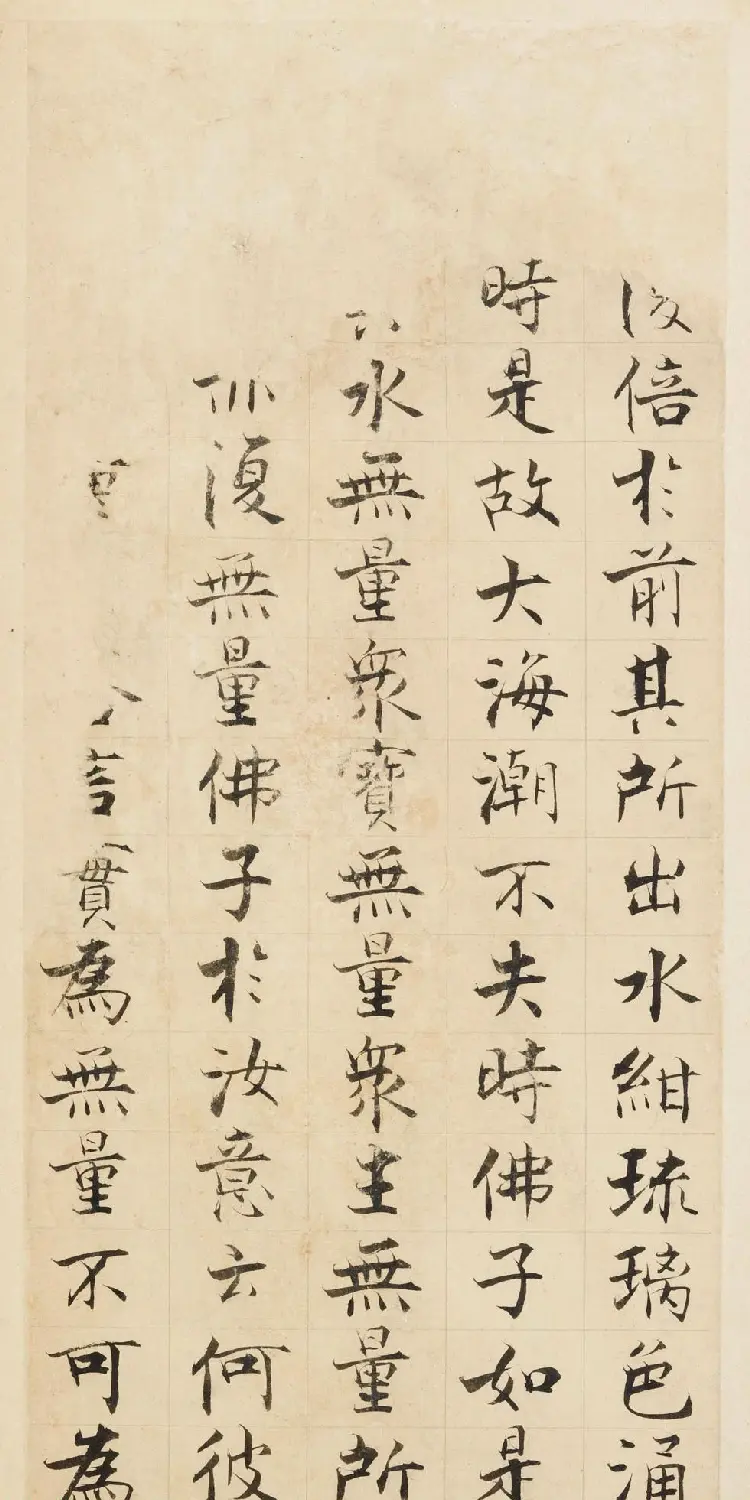 復倍於前其所出水紺琉璃色涌
時是故大海潮不失時佛子如是
水無量衆寶無量衆生無量所
亦復無量佛子於汝意云何彼
言實為無量不可為